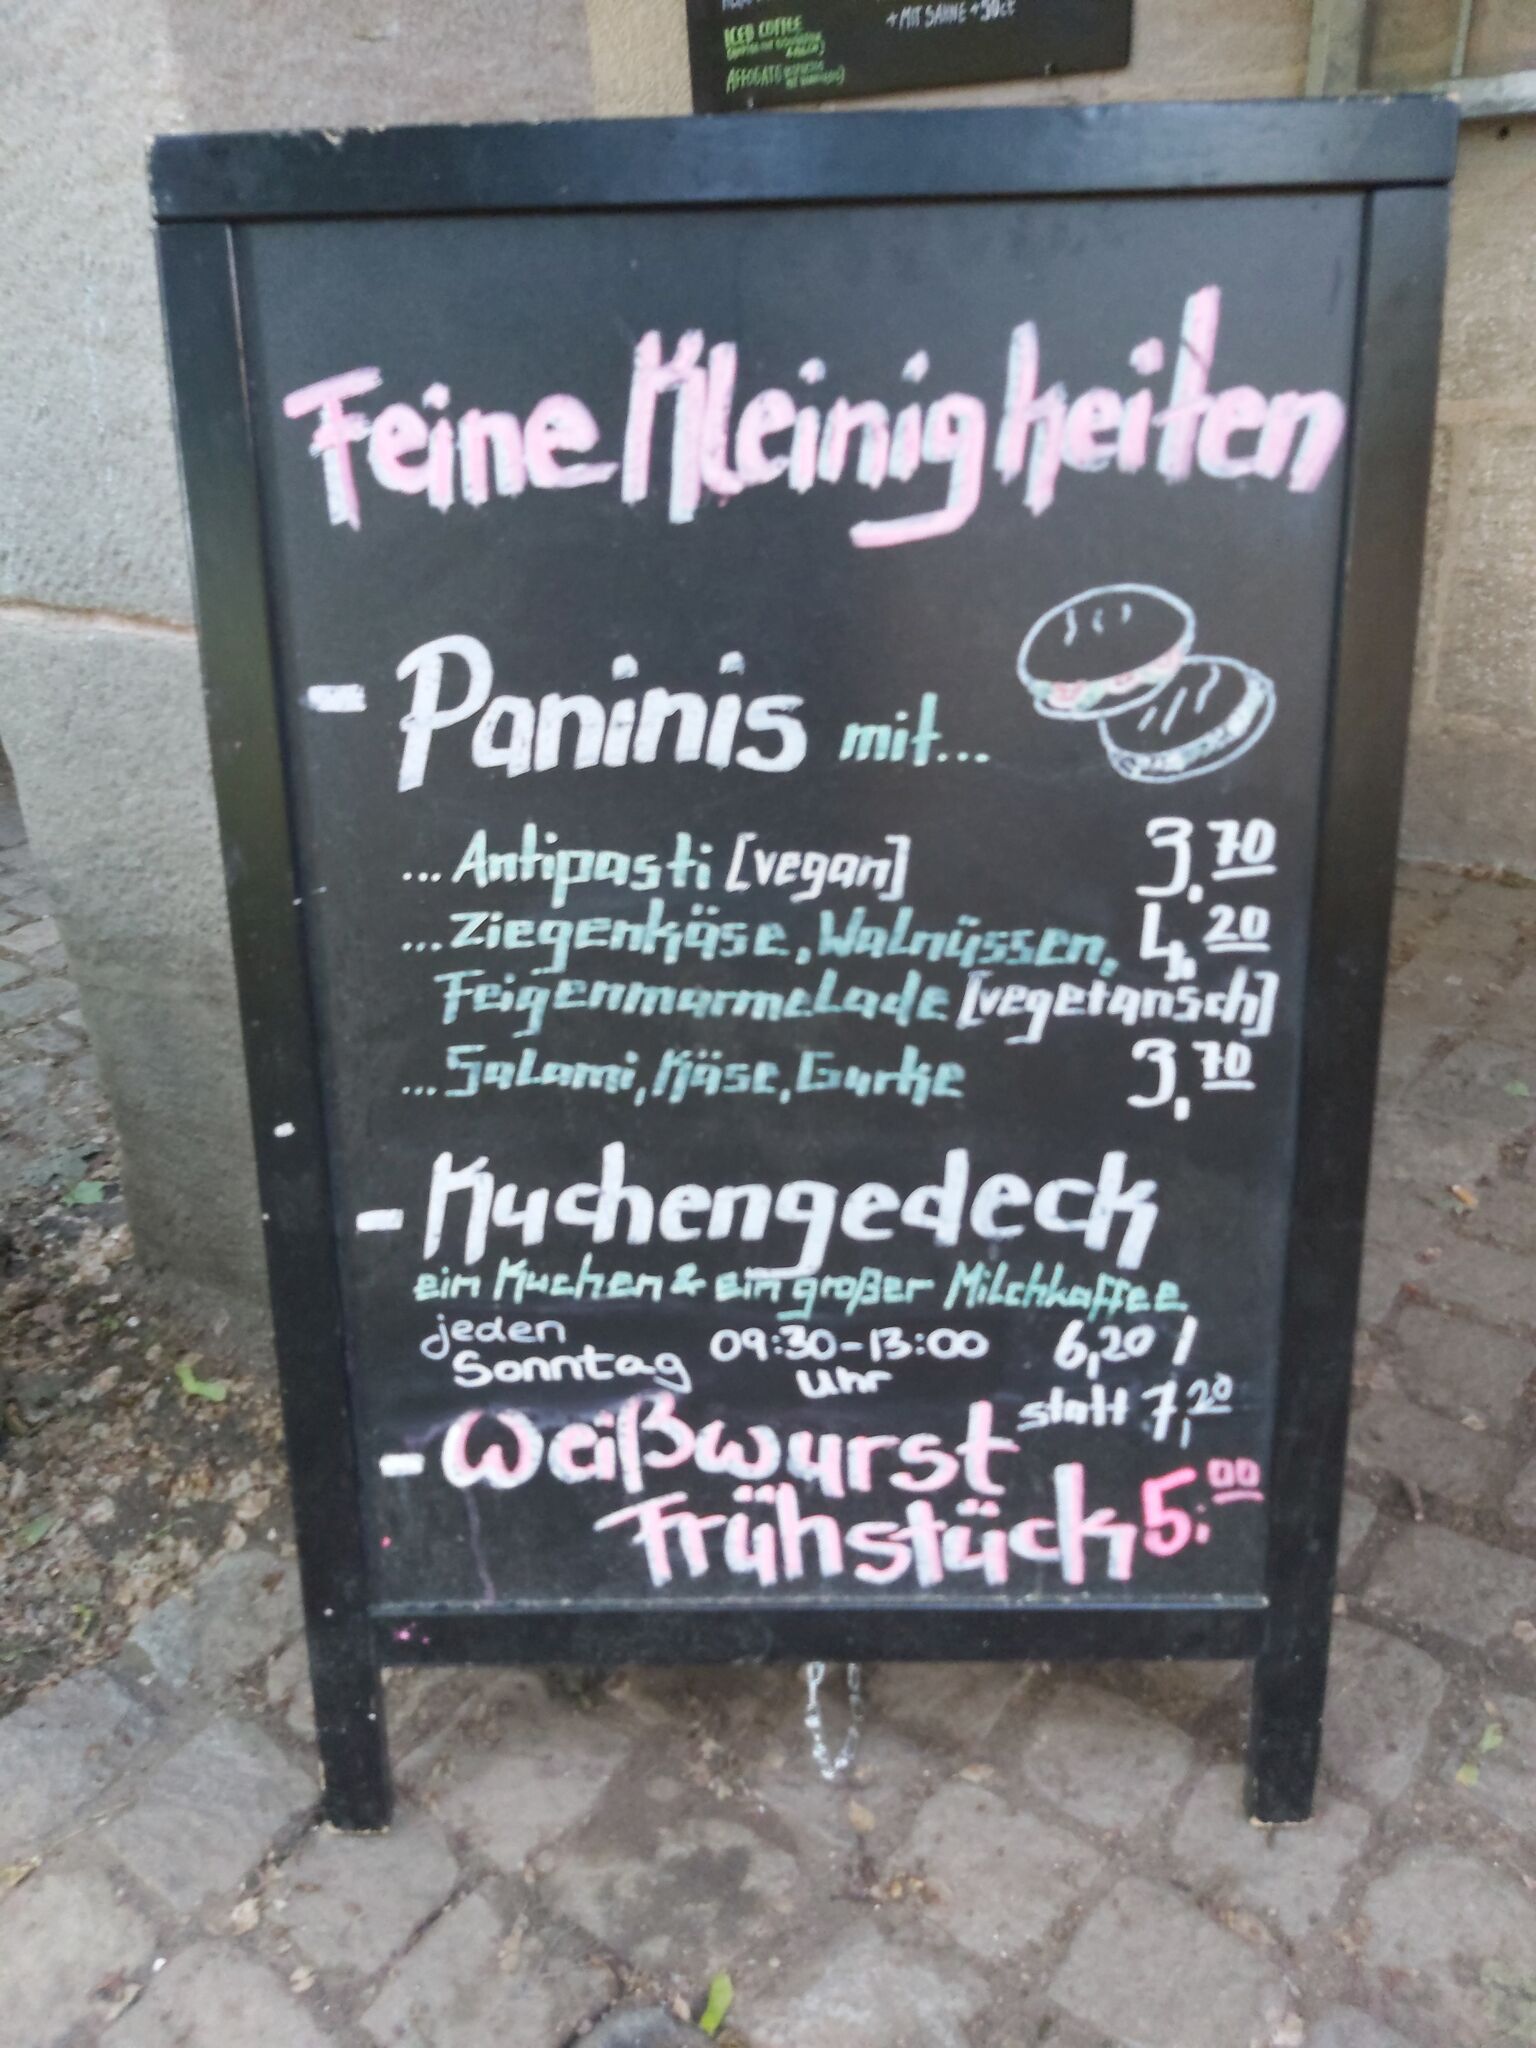 + MIT SAHNE + 50ct
ICED COFFEE
AFFOGATO
Feine Kleinigkeiten
- Paninis mit...
...Antipasti [vegan] 3,70
...Ziegenkäse, Walnüssen, 4,20
Feigenmarmelade [vegetarisch]
...Salami, Käse, Gurke 3,70
- Kuchengedeck
ein Kuchen & ein großer Milchkaffee
jeden 09:30-13:00 6,20 !
Sonntag Uhr statt 7,20
- Weißwurst
Frühstück 5,00